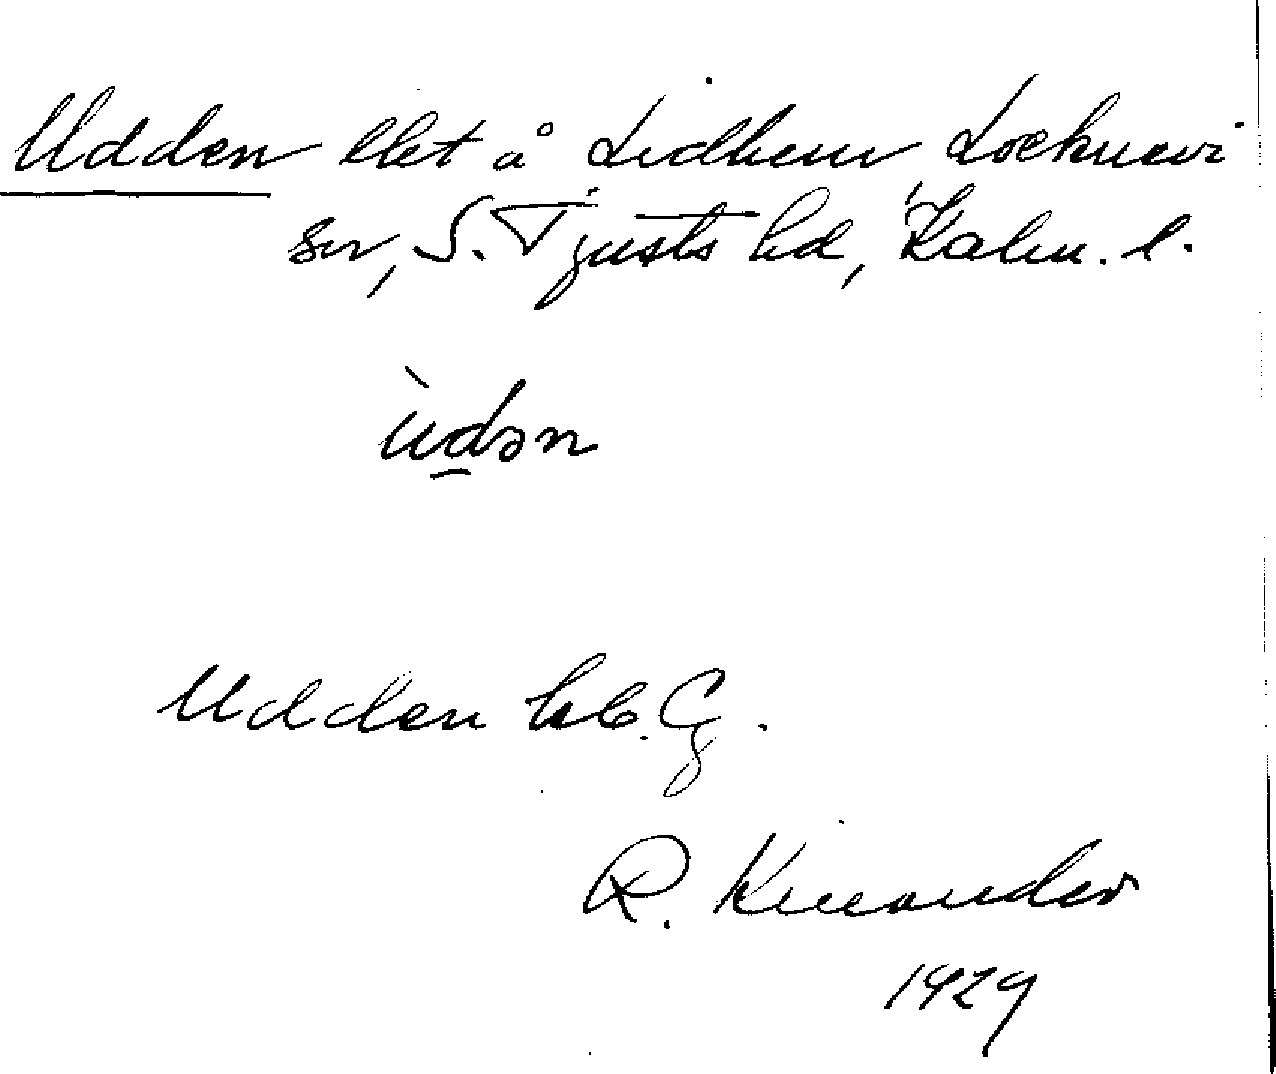 Udden lht å Lidhem Locknevi
sn, S. Tjusts hd, Kalm. l.
ùdən
Udden hb. Cg.
R. Kinander
1929